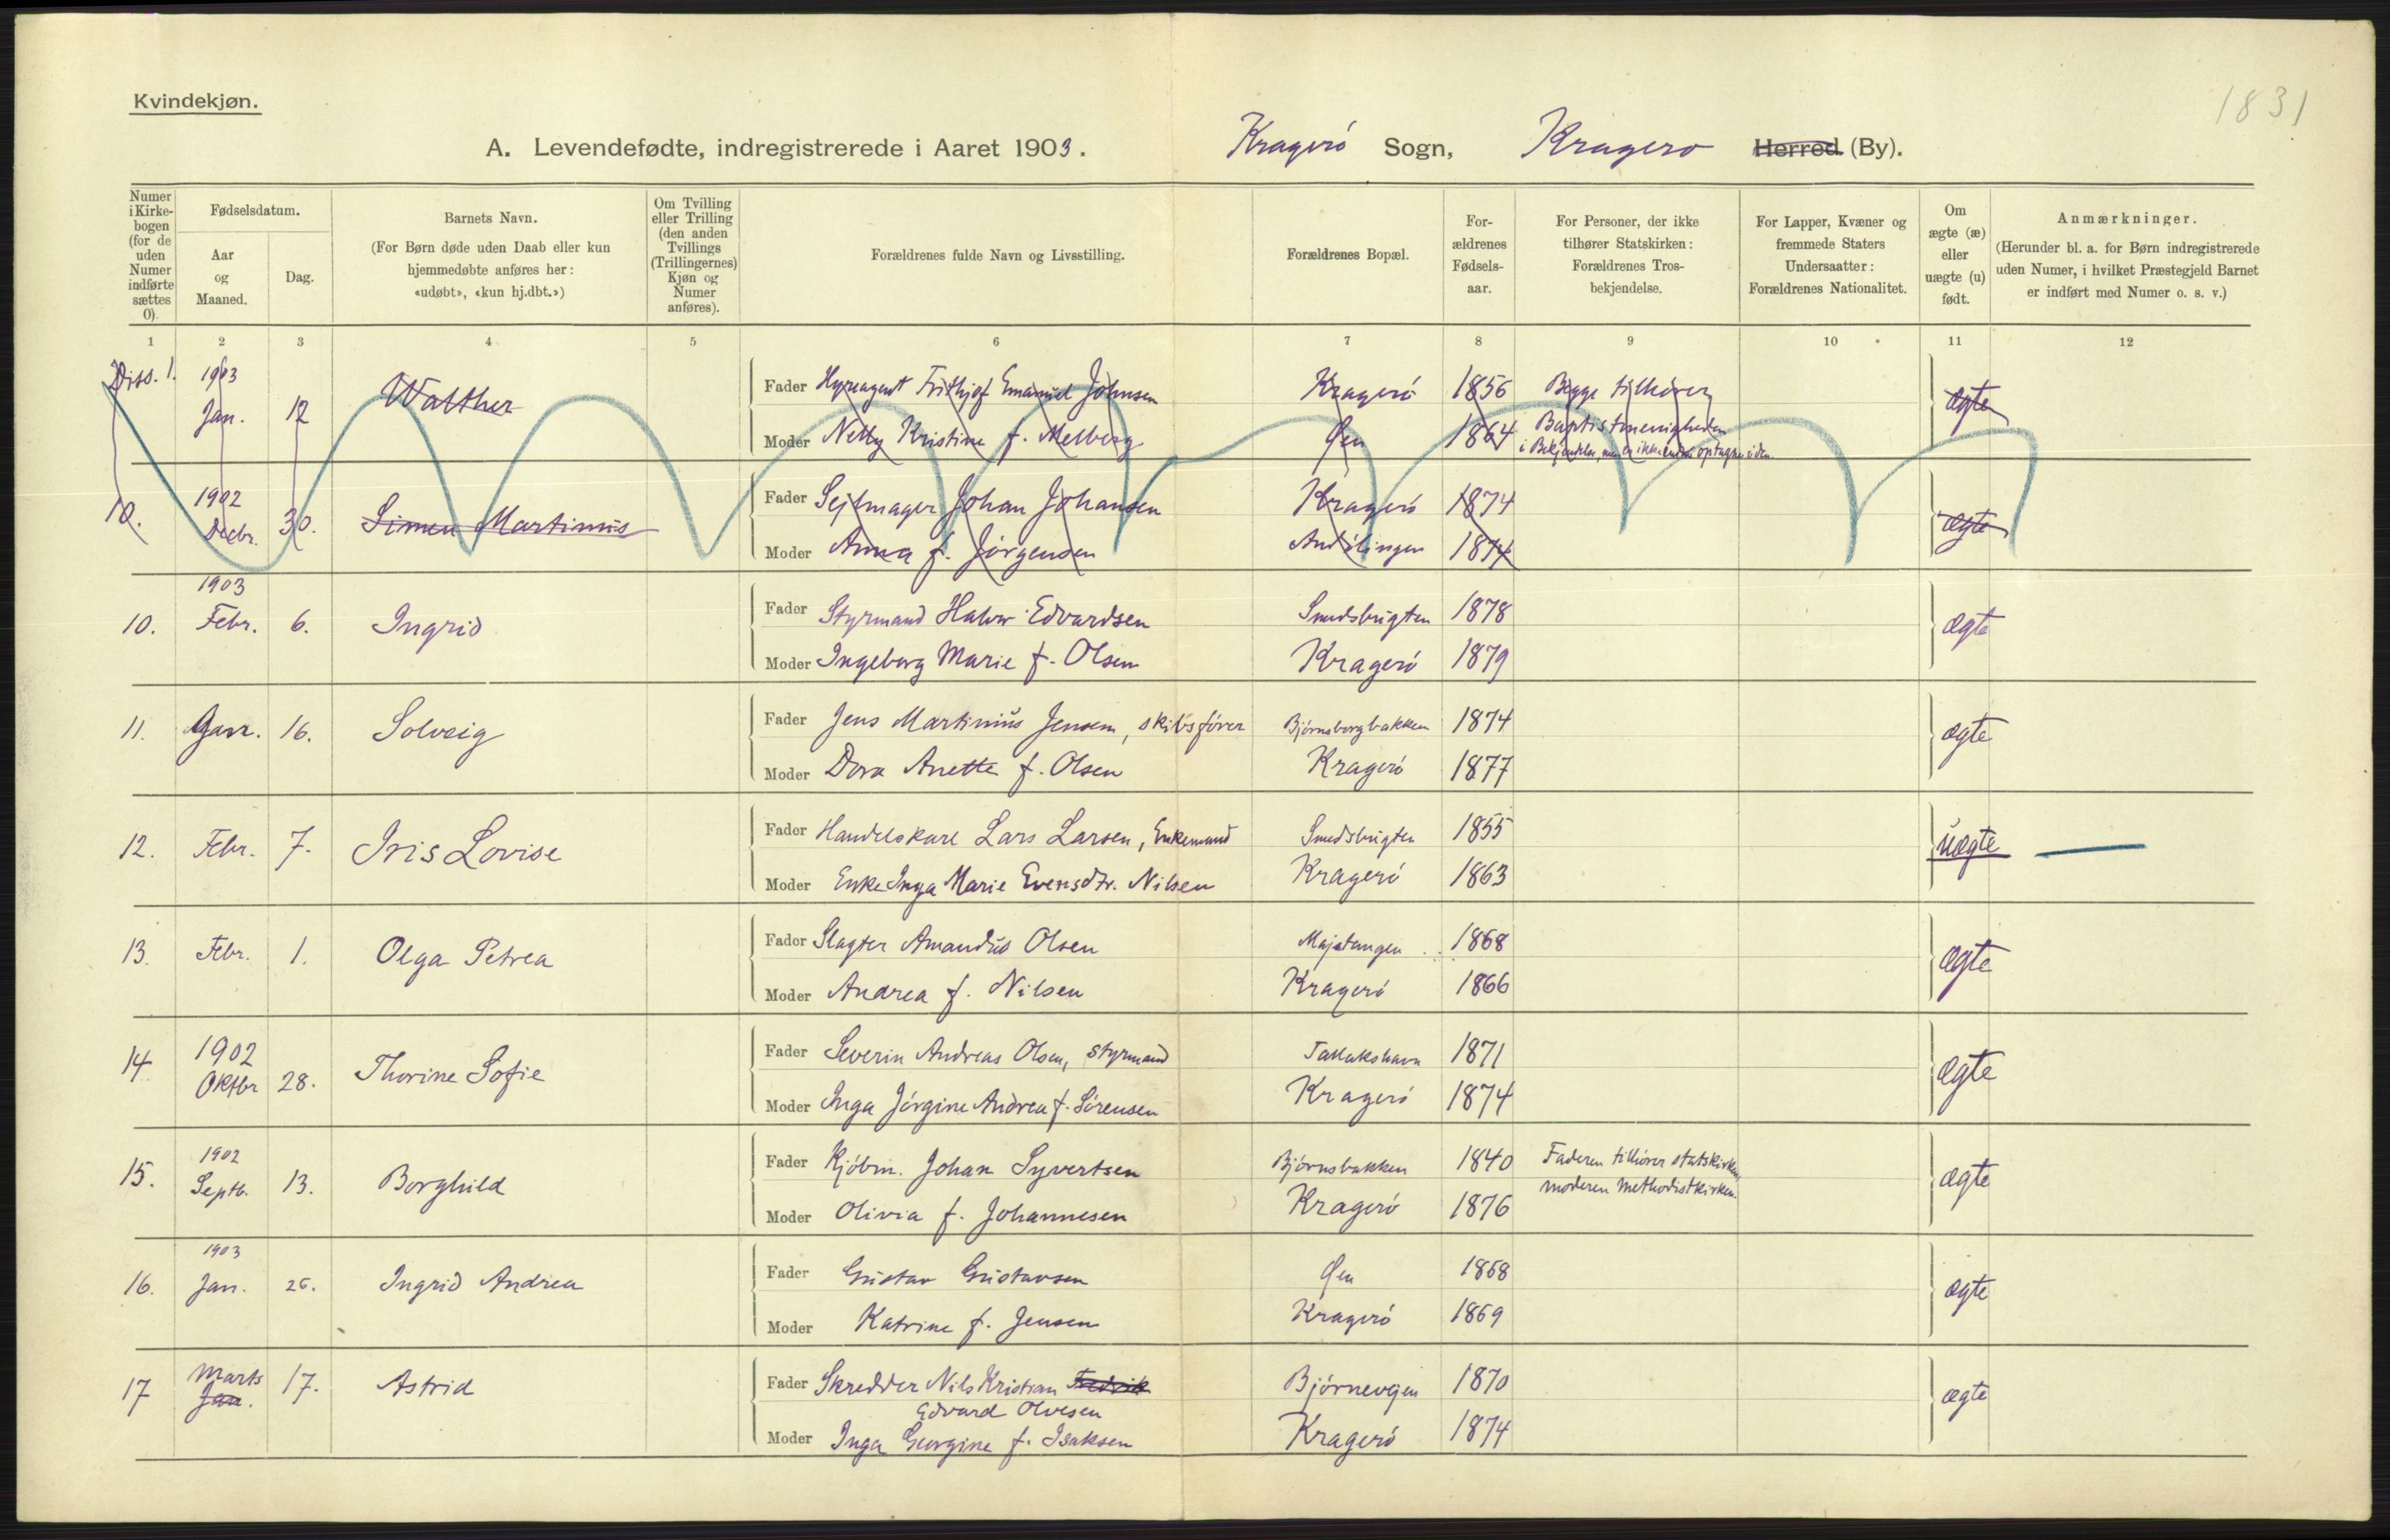 1831
Kvindekjøn.
A. Levendefødte, indregistrerede i Aaret 1903. Kragerö Sogn, Kragerø Herred (By).
Numer i Kirkebogen (for de uden Numer indførte sættes 0).
Fødselsdatum.
Aar og Maaned.
Dag.
Barnets Navn.
(For Børn døde uden Daab eller kun hjemmedøbte anføres her: «udøbt», «kun hj.dbt.»)
Om Tvilling eller Trilling (den anden Tvillings (Trillingernes) Kjøn og Numer anføres).
Forældrenes fulde Navn og Livsstilling.
Forældrenes Bopæl.
Forældrenes Fødselsaar.
For Personer, der ikke tilhører Statskirken: Forældrenes Trosbekjendelse.
For Lapper, Kvæner og fremmede Staters Undersaatter: Forældrenes Nationalitet.
Om ægte (æ) eller uægte (u) født.
Anmærkninger.
(Herunder bl. a. for Børn indregistrerede uden Numer, i hvilket Præstegjeld Barnet er indført med Numer o. s. v.)
1 2 3 4 5 6 7 8 9 10 11 12
Diss. 1. 1903 Jan. 12 Walther
Fader Hyreagent Frithjof Emanuel Johnsen Kragerö 1856 Begge tilhører
ægte
Moder Nelly Kristine f. Melberg Øen 1864 Baptistmenigheden
i Bekjendelse, men er ikke endnu optagne i den
10. 1902 Decbr. 30. Simen Martinius
Fader Sejlmager Johan Johansen Kragerö 1874
ægte
Moder Anna f. Jörgensen 1874
10. 1903 Febr. 6. Ingrid
Fader Styrmand Halvor Edvardsen Smedsbugten 1878
ægte
Moder Ingeborg Marie f. Olsen Kragerö 1879
11. Jan. 16. Solveig
Fader Jens Martinius Jensen, skibsförer Björnsborgbakken 1874
ægte
Moder Dora Anette f. Olsen Kragerö 1877
12. Febr. 7. Iris Lovise
Fader Handelskarl Lars Larsen, Enkemand Smedsbugten 1855
uægte
Moder Enke Inga Marie Evensdtr. Nilsen Kragerö 1863
13. Febr. 1. Olga Petrea
Fader Slagter Amandus Olsen Majstangen 1868
ægte
Moder Andrea f. Nilsen Kragerö 1866
14. 1902 Oktbr 28. Thorine Sofie
Fader Severin Andreas Olsen, styrmand Tallakshavn 1871
ægte
Moder Inga Jörgine Andrea f. Sörensen Kragerö 1874
15. 1902 Septb. 13. Borghild
Fader Kjöbm. Johan Syvertsen Björnsbakken 1840 Faderen tilhörer statskirken,
moderen Methodistkirken.
ægte
Moder Olivia f. Johannesen Kragerö 1876
16. 1903 Jan. 26. Ingrid Andrea
Fader Gustav Gustavsen Øen 1868
ægte
Moder Katrine f. Jensen Kragerö 1869
17 Marts Jan. 17. Astrid
Fader Skredder Nils Kristian Fredrik Björnevejen 1870
Edvard Olvesen
ægte
Moder Inga Georgine f. Isaksen Kragerö 1874